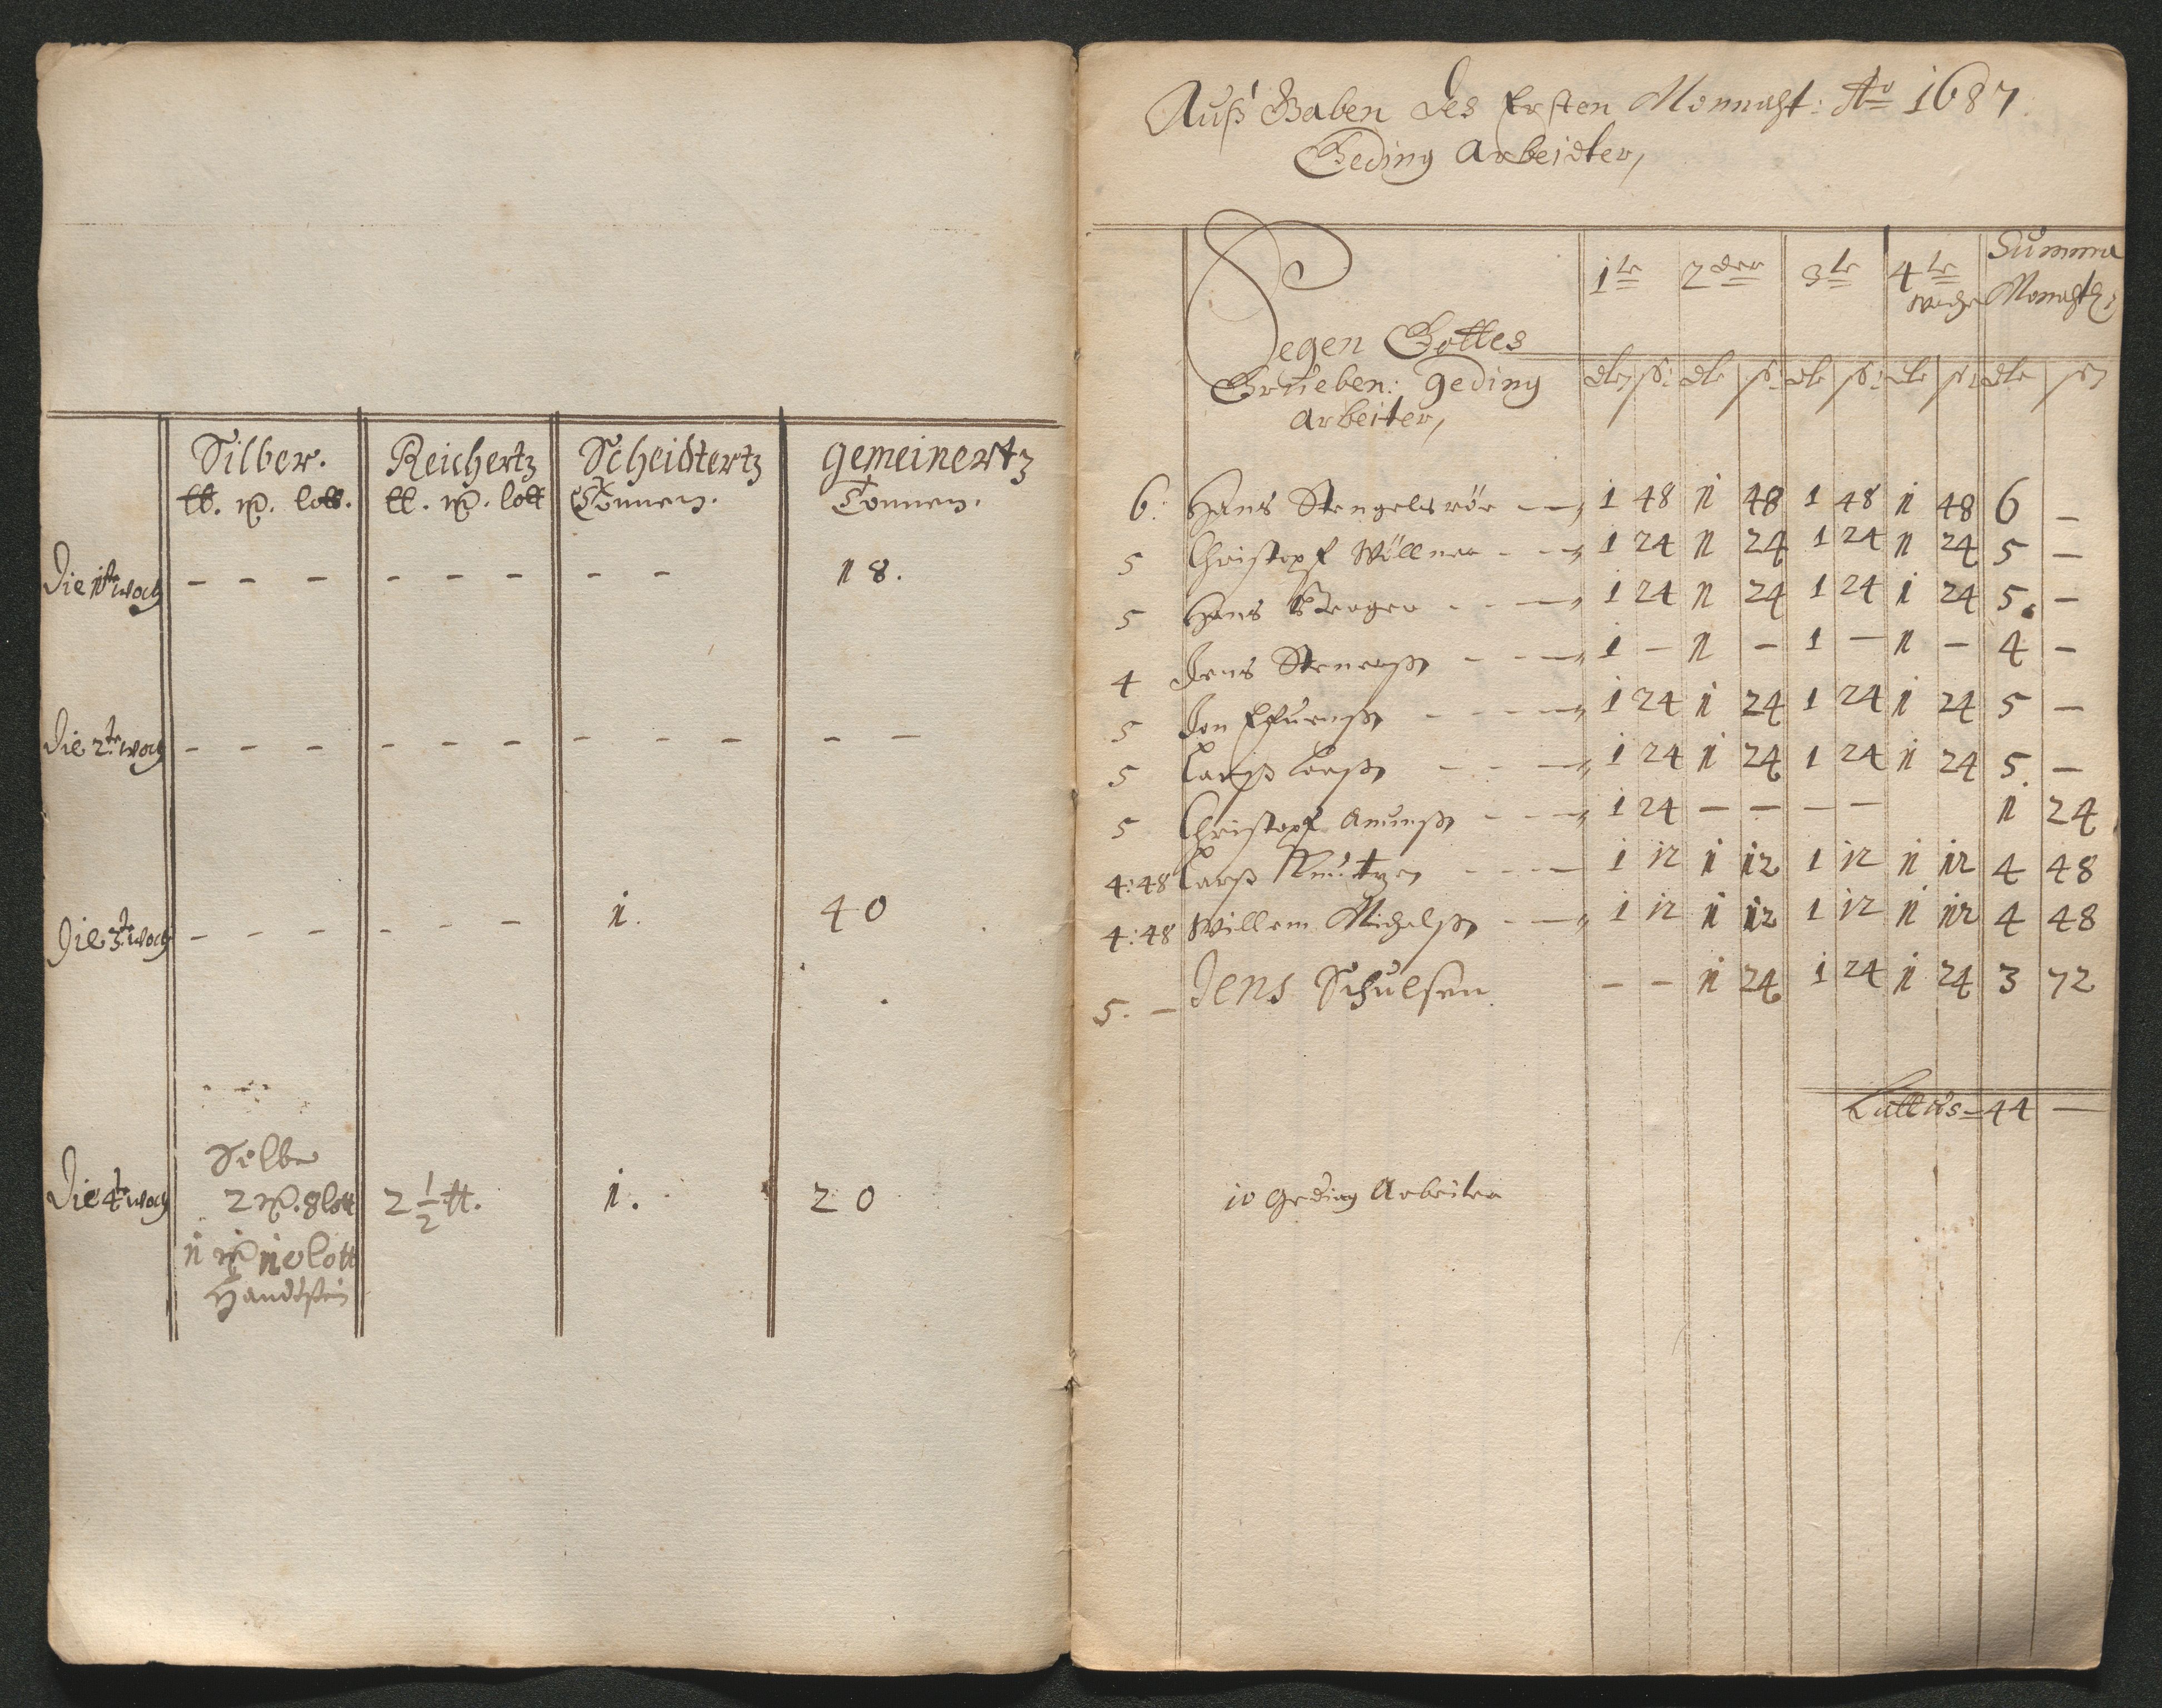 Silber. Reichertz Scheidtertz gemeinertz
lb. mp. lott. lb. mp. lott Tonnen. Tonnen.
Die 1ste woch - - - - - - - - 18.
Die 2te woch - - - - - - - - - - -
Die 3te woch - - - - - - 1. 40
Silber
Die 4te woch 2 mp. 8 lott 2 1/2 lb. 1. 20
1 mp 10 lott
Handtstein
Auß Gaben des Ersten Monnaht: Ao 1687.
Geding Arbeidter,
1te 2der 3te 4te Summa
woche Monaht
Segen Gottes
Grueben: geding dlr ß: dlr ß: dlr ß: dlr ß: dlr ß
Arbeiter,
6: Hans Stengelsröe 1 48 1 48 1 48 1 48 6 -
5 Christopf Wöllner 1 24 1 24 1 24 1 24 5 -
5 Hans 1 24 1 24 1 24 1 24 5. -
4 Jens 1 - 1 - 1 - 1 - 4 -
5 Jon 1 24 1 24 1 24 1 24 5 -
5 Larß Larß 1 24 1 24 1 24 1 24 5. -
5 Christopf Amunß 1 24 - - - - 1 24
4:48 Larß Knutzen 1 12 1 12 1 12 1 12 4 48
4:48 Willem Michelß 1 12 1 12 1 12 1 12 4 48
5. - Jens Schulsen - - 1 24 1 24 1 24 3 72
Lattus - 44 -
10 Geding Arbeiter